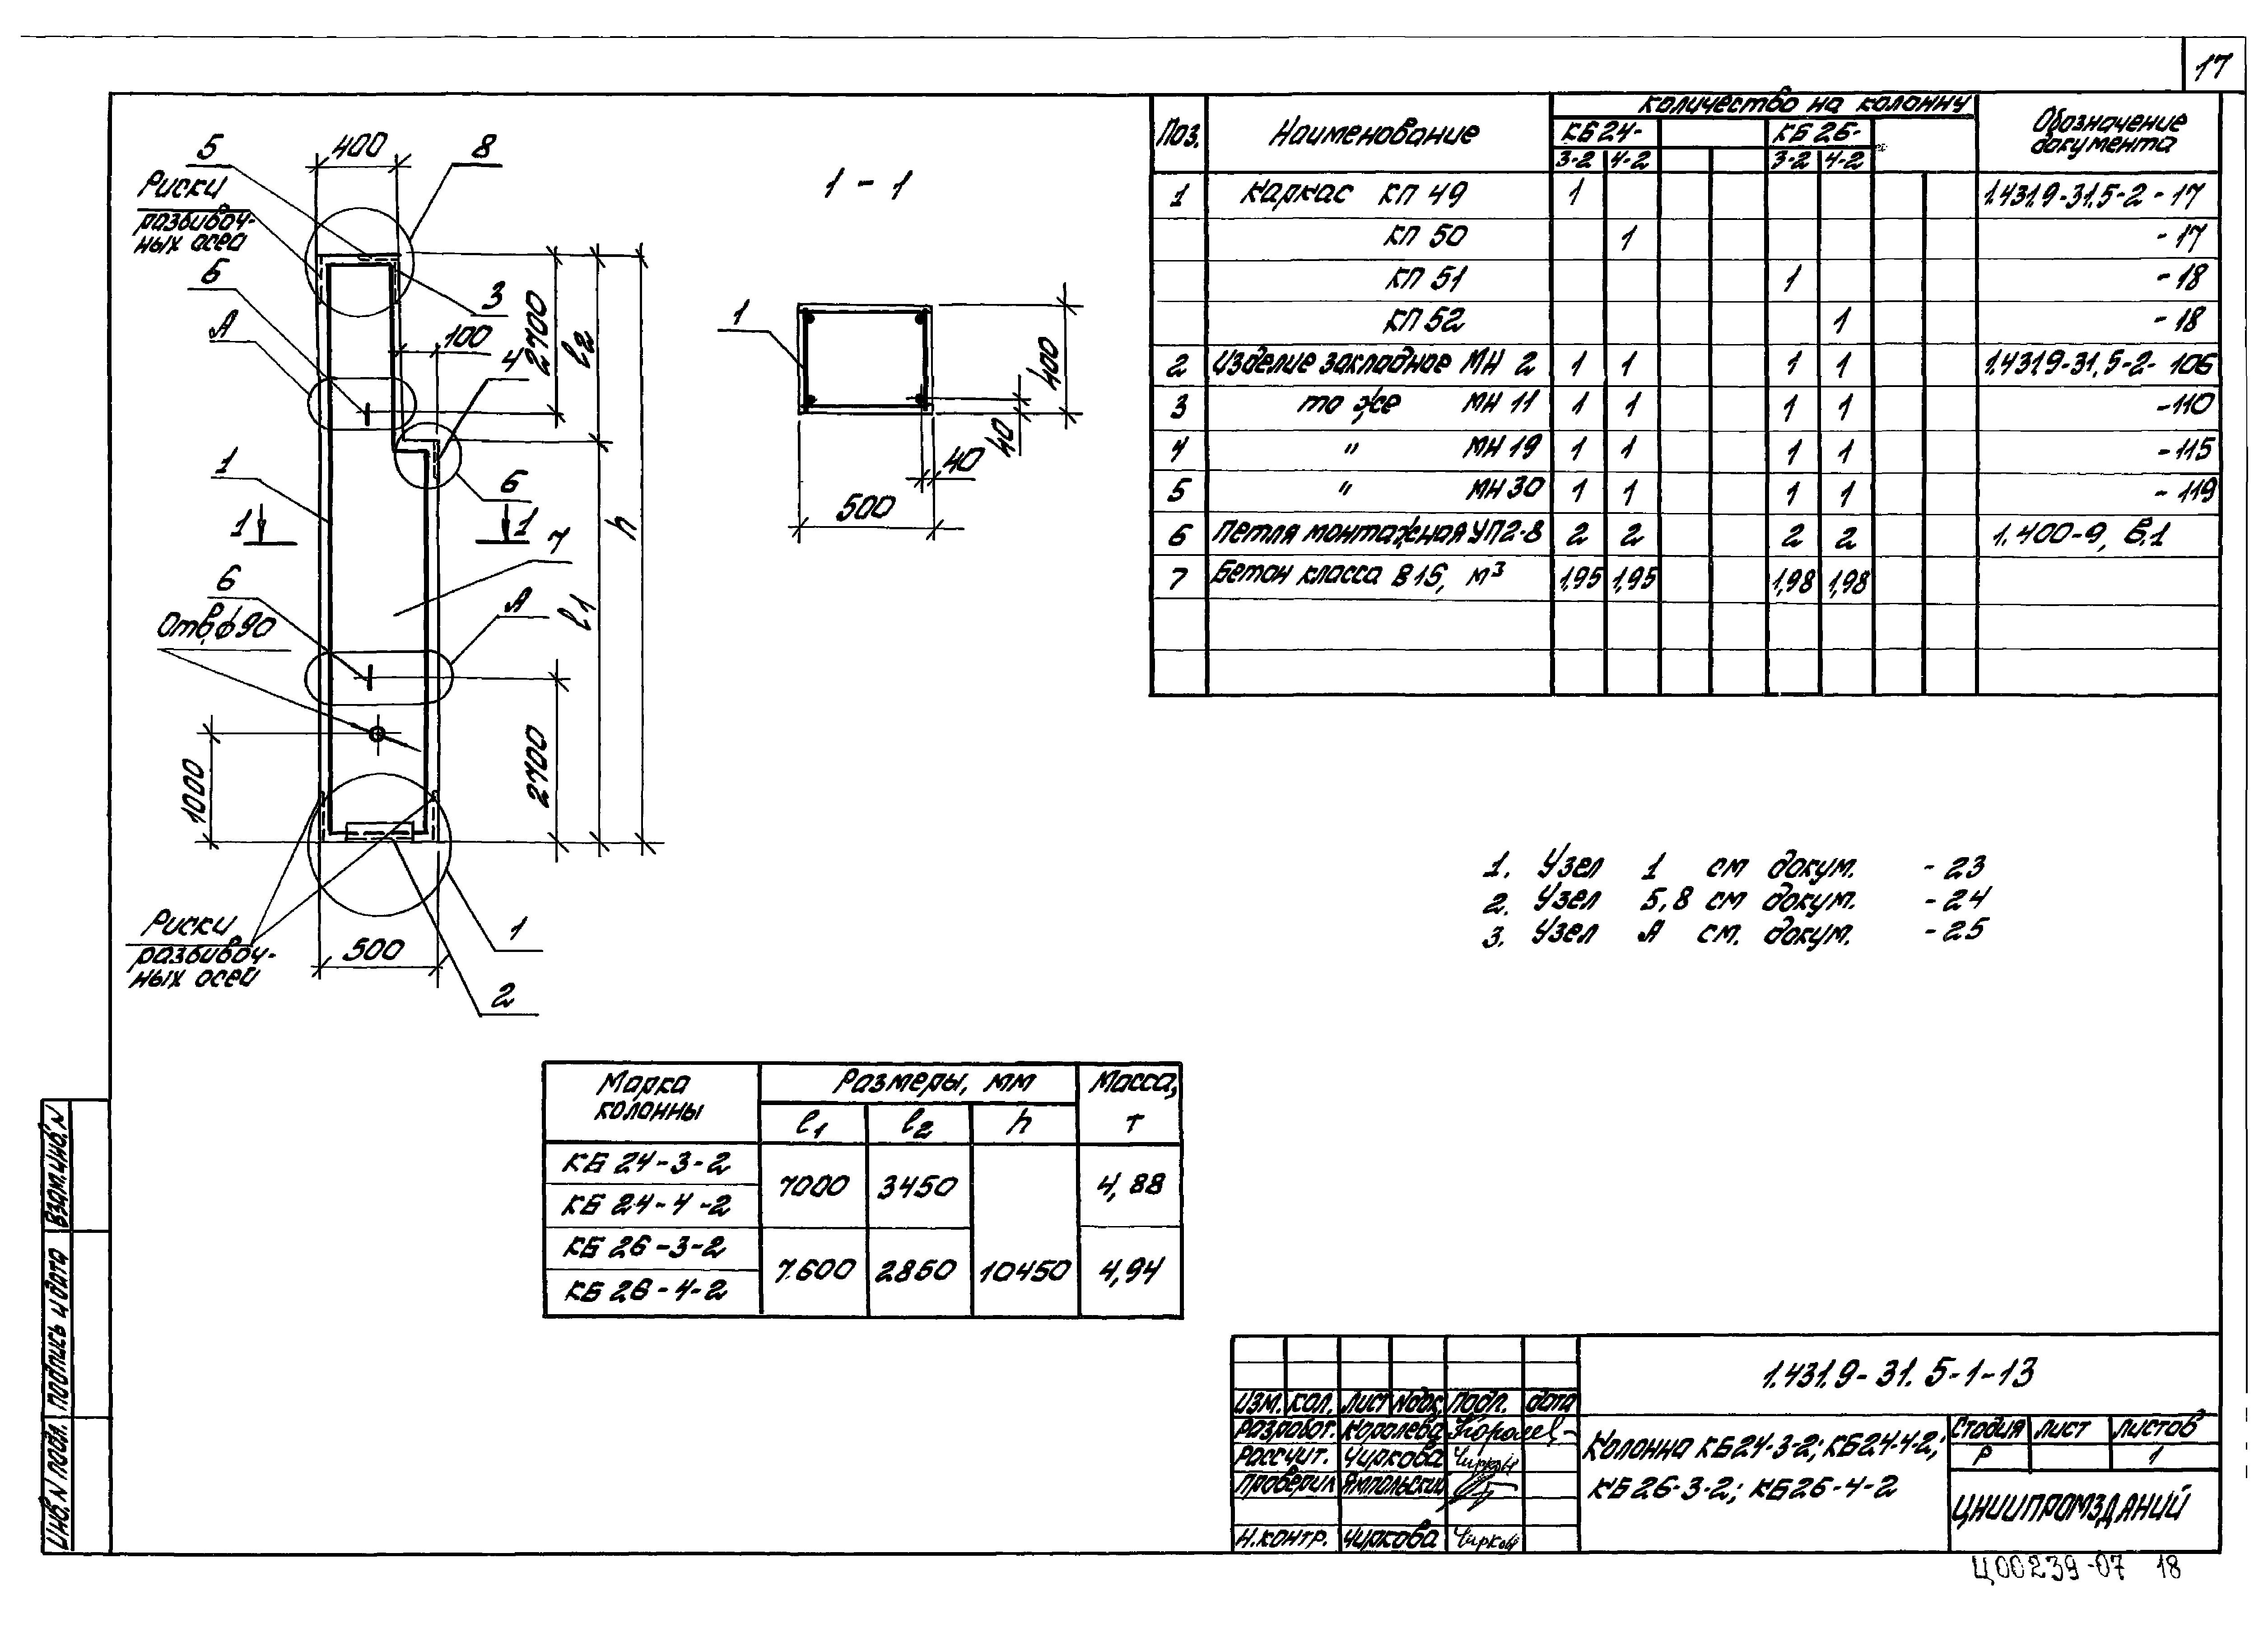 17
5
400
8
Риски
разбивоч-
ных осей
6
А
3
100
4
2700
l2
h
1
1
1
6
7
6
А
Отв. ф90
l1
2700
1000
Риски
разбивоч-
ных осей
500
1
2
1 - 1
1
400
40
40
500
Поз. Наименование Количество на колонну Обозначение документа
КБ 24- КБ 26-
3-2 4-2 3-2 4-2
1 Каркас КП 49 1 1.431.9-31.5-2 - 17
КП 50 1 - 17
КП 51 1 - 18
КП 52 1 - 18
2 Изделие закладное МН 2 1 1 1 1 1.431.9-31.5-2- 106
3 то же МН 11 1 1 1 1 -110
4 " МН 19 1 1 1 1 -115
5 " МН 30 1 1 1 1 - 119
6 Петля монтажная УП2-8 2 2 2 2 1.400-9, В.1
7 Бетон класса В15, м³ 1,95 1,95 1,98 1,98
1. Узел 1 см докум. - 23
2. Узел 5,8 см докум. - 24
3. Узел А см. докум. - 25
Марка колонны Размеры, мм Масса, т
l1 l2 h
КБ 24-3-2 7000 3450 10450 4,88
КБ 24-4-2
КБ 26-3-2 7600 2850 4,94
КБ 26-4-2
Взам. инв. N
Подпись и дата
Инв. N подл.
1.431.9-31.5-1-13
Изм. Кол. Лист Nдок. Подп. дата
Разработ. Королева
Рассчит. Чиркова
Проверил Ямпольский
Н.контр. Чиркова
Колонна КБ24-3-2; КБ24-4-2;
КБ26-3-2; КБ26-4-2
Стадия Лист Листов
Р 1
ЦНИИПРОМЗДАНИЙ
Ц00239-07 18